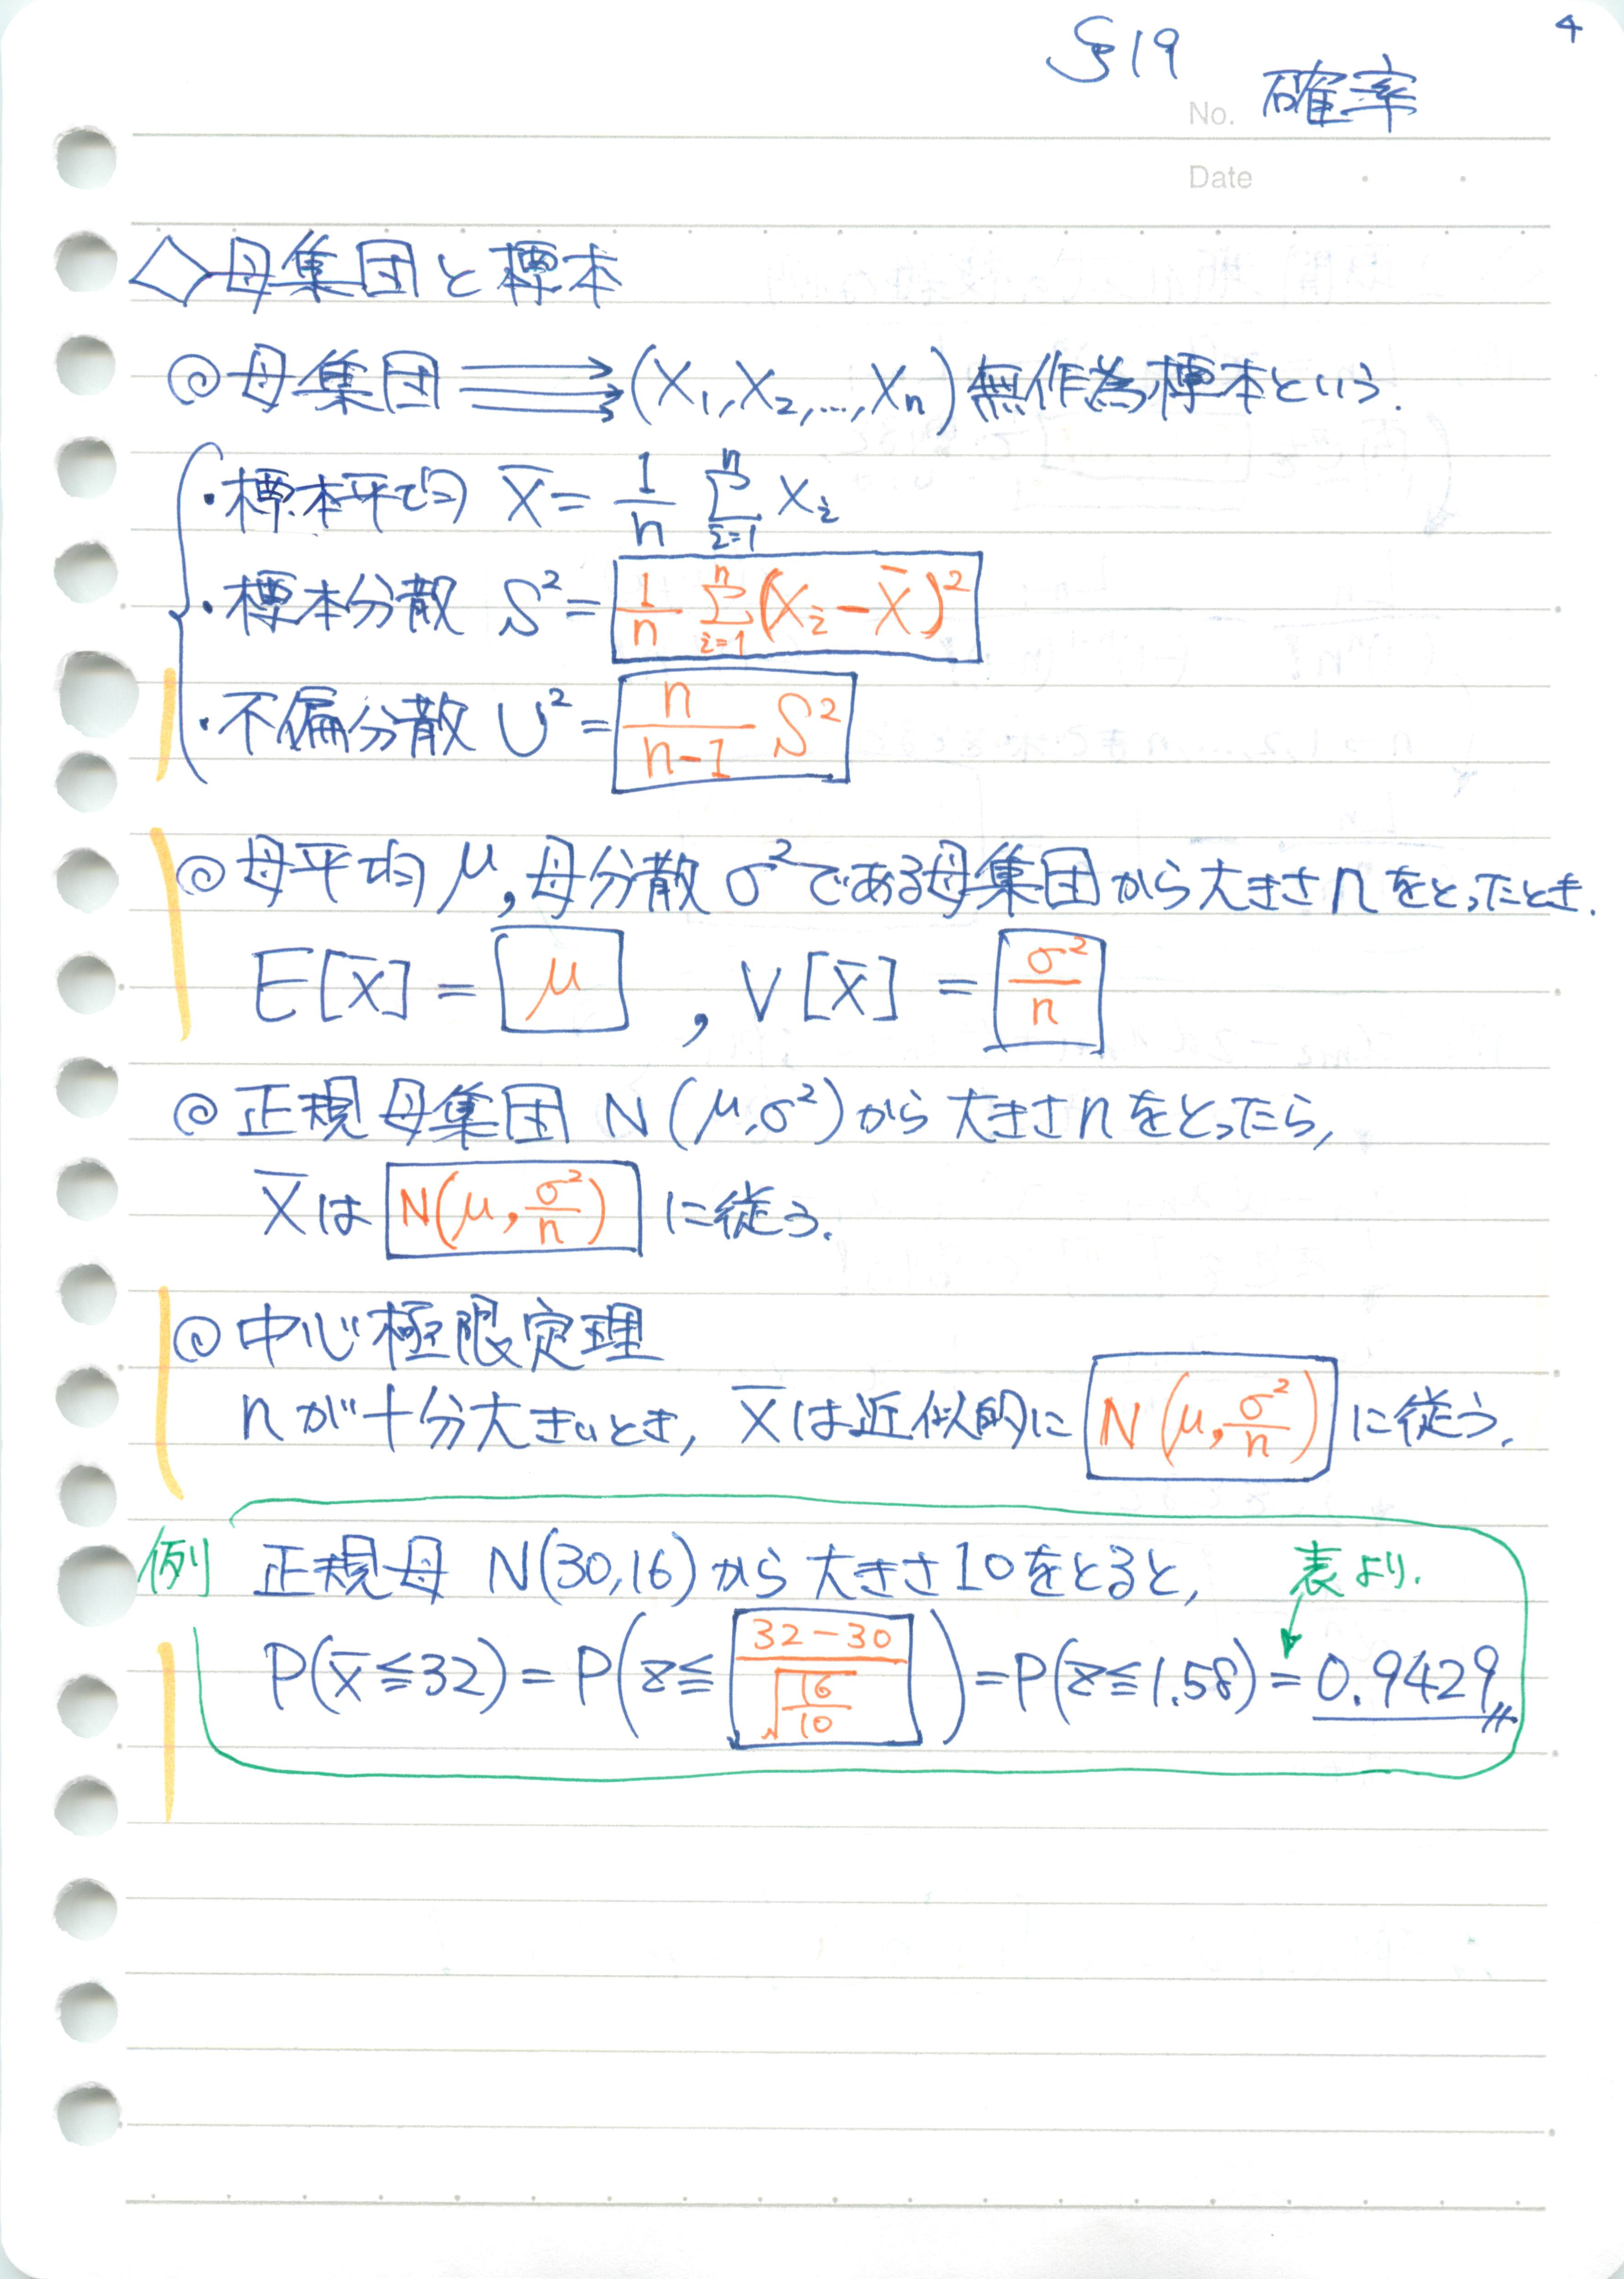 4
§19
No. 確率
Date
◇母集団と標本
◎母集団 → (X₁, X₂, ..., Xn) 無作為標本という.
・標本平均 X̄ = 1/n Σ_{i=1}^{n} Xi
・標本分散 S² = 1/n Σ_{i=1}^{n} (Xi − X̄)²
・不偏分散 U² = n/(n-1) S²
◎母平均 μ, 母分散 σ² である母集団から大きさ n をとったとき.
E[X̄] = μ , V[X̄] = σ²/n
◎正規母集団 N(μ, σ²) から大きさ n をとったら,
X̄は N(μ, σ²/n) に従う.
◎中心極限定理
n が十分大きいとき, X̄は近似的に N(μ, σ²/n) に従う.
例 正規母 N(30,16) から大きさ10をとると, 表より.
P(x̄ ≦ 32) = P(z ≦ (32−30)/√(16/10)) = P(z ≦ 1.58) = 0.9429